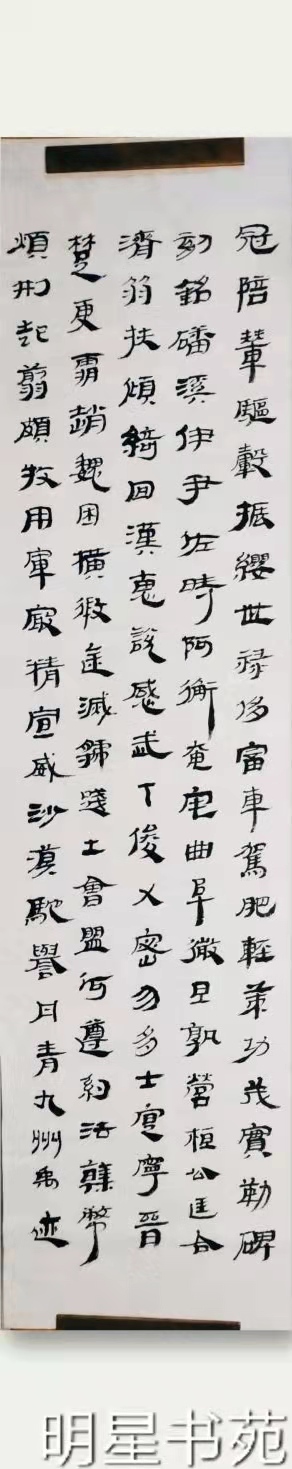 冠陪輦驅轂振纓世祿侈富車駕肥輕策功茂實勒碑
刻銘磻溪伊尹佐時阿衡奄宅曲阜微旦孰營桓公匡合
濟弱扶傾綺回漢惠說感武丁俊乂密勿多士寔寧晉
楚更霸趙魏困橫假途滅虢踐土會盟何遵約法韓弊
煩刑起翦頗牧用軍最精宣威沙漠馳譽丹青九州禹迹
明星书苑